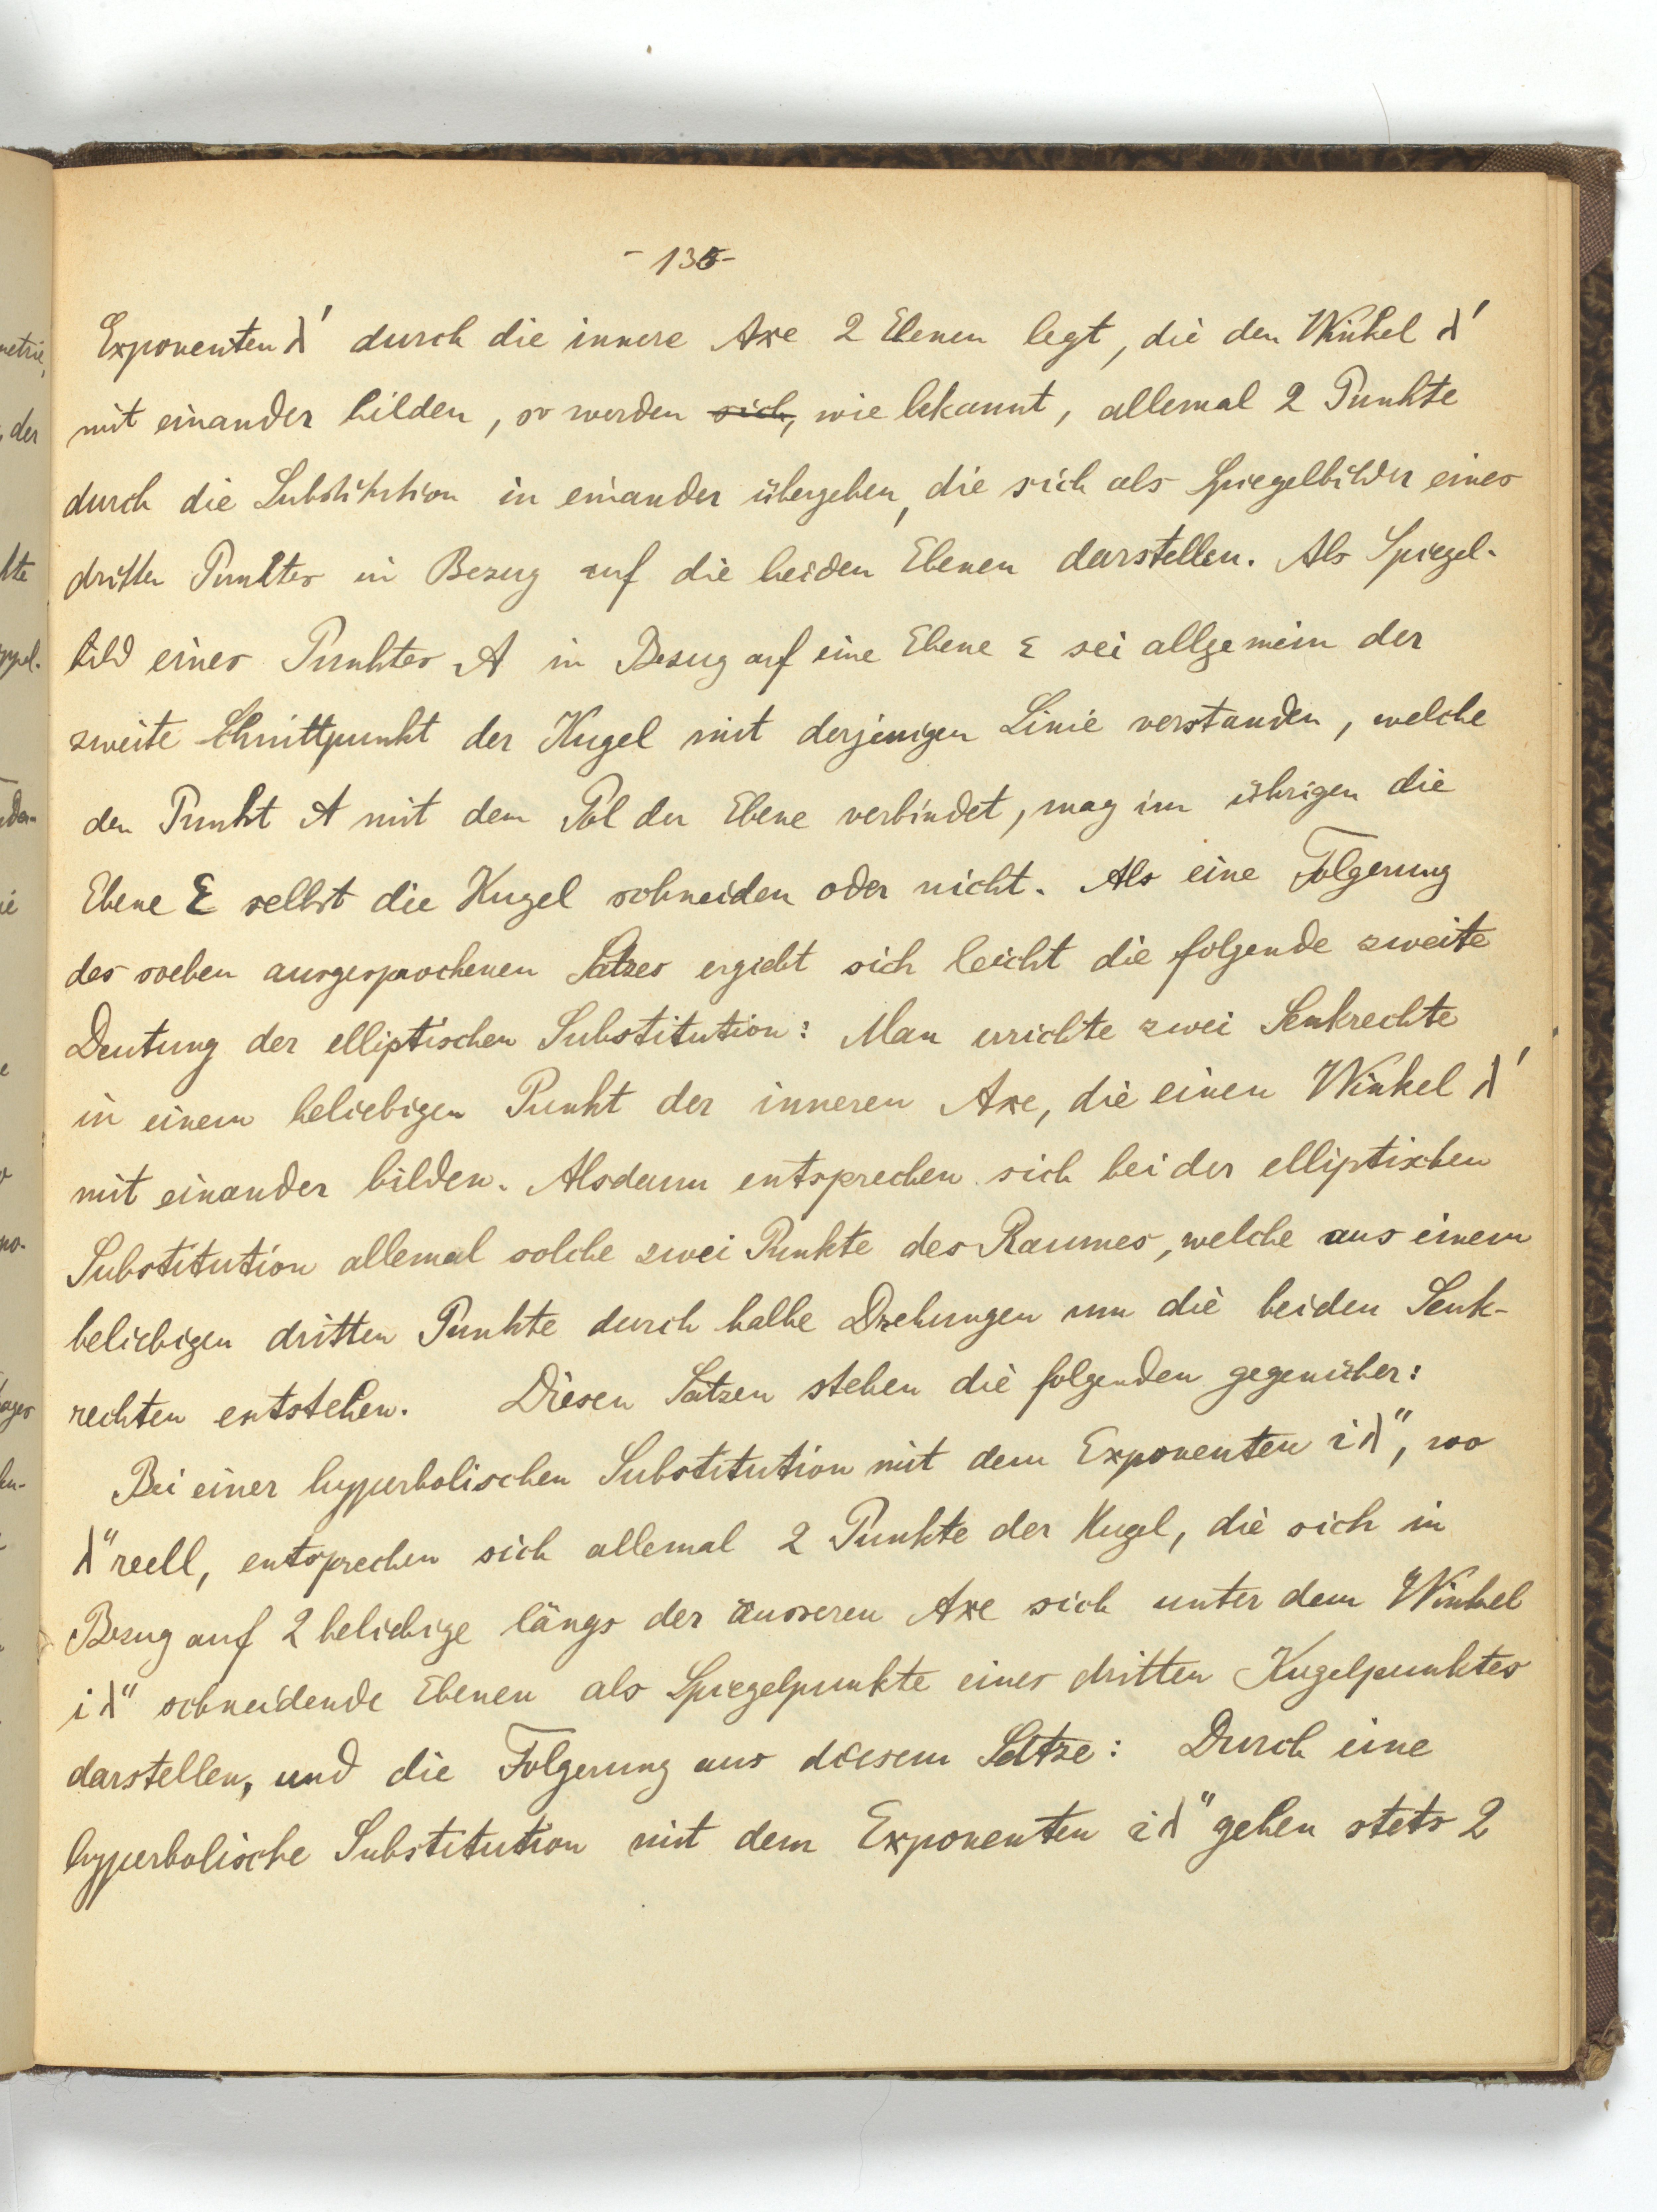 - 135 -
Exponenten λ' durch die innere Axe 2 Ebenen legt, die den Winkel λ'
mit einander bilden, so werden sich, wie bekannt, allemal 2 Punkte
durch die Substitution in einander übergehen, die sich als Spiegelbilder eines
dritten Punktes in Bezug auf die beiden Ebenen darstellen. Als Spiegel-
bild eines Punktes A in Bezug auf eine Ebene ε sei allgemein der
zweite Schnittpunkt der Kugel mit derjenigen Linie verstanden, welche
den Punkt A mit dem Pol der Ebene verbindet, mag im übrigen die
Ebene ε selbst die Kugel schneiden oder nicht. Als eine Folgerung
des soeben ausgesprochenen Satzes ergiebt sich leicht die folgende zweite
Deutung der elliptischen Substitution: Man errichte zwei Senkrechte
in einem beliebigen Punkt der inneren Axe, die einen Winkel λ'
mit einander bilden. Alsdann entsprechen sich bei der elliptischen
Substitution allemal solche zwei Punkte des Raumes, welche aus einem
beliebigen dritten Punkte durch halbe Drehungen um die beiden Senk-
rechten entstehen. Diesen Sätzen stehen die folgenden gegenüber:
Bei einer hyperbolischen Substitution mit dem Exponenten iλ", wo
λ" reell, entsprechen sich allemal 2 Punkte der Kugel, die sich in
Bezug auf 2 beliebige längs der äusseren Axe sich unter dem Winkel
iλ" schneidende Ebenen als Spiegelpunkte eines dritten Kugelpunktes
darstellen, und die Folgerung aus diesem Satze: Durch eine
hyperbolische Substitution mit dem Exponenten iλ" gehen stets 2